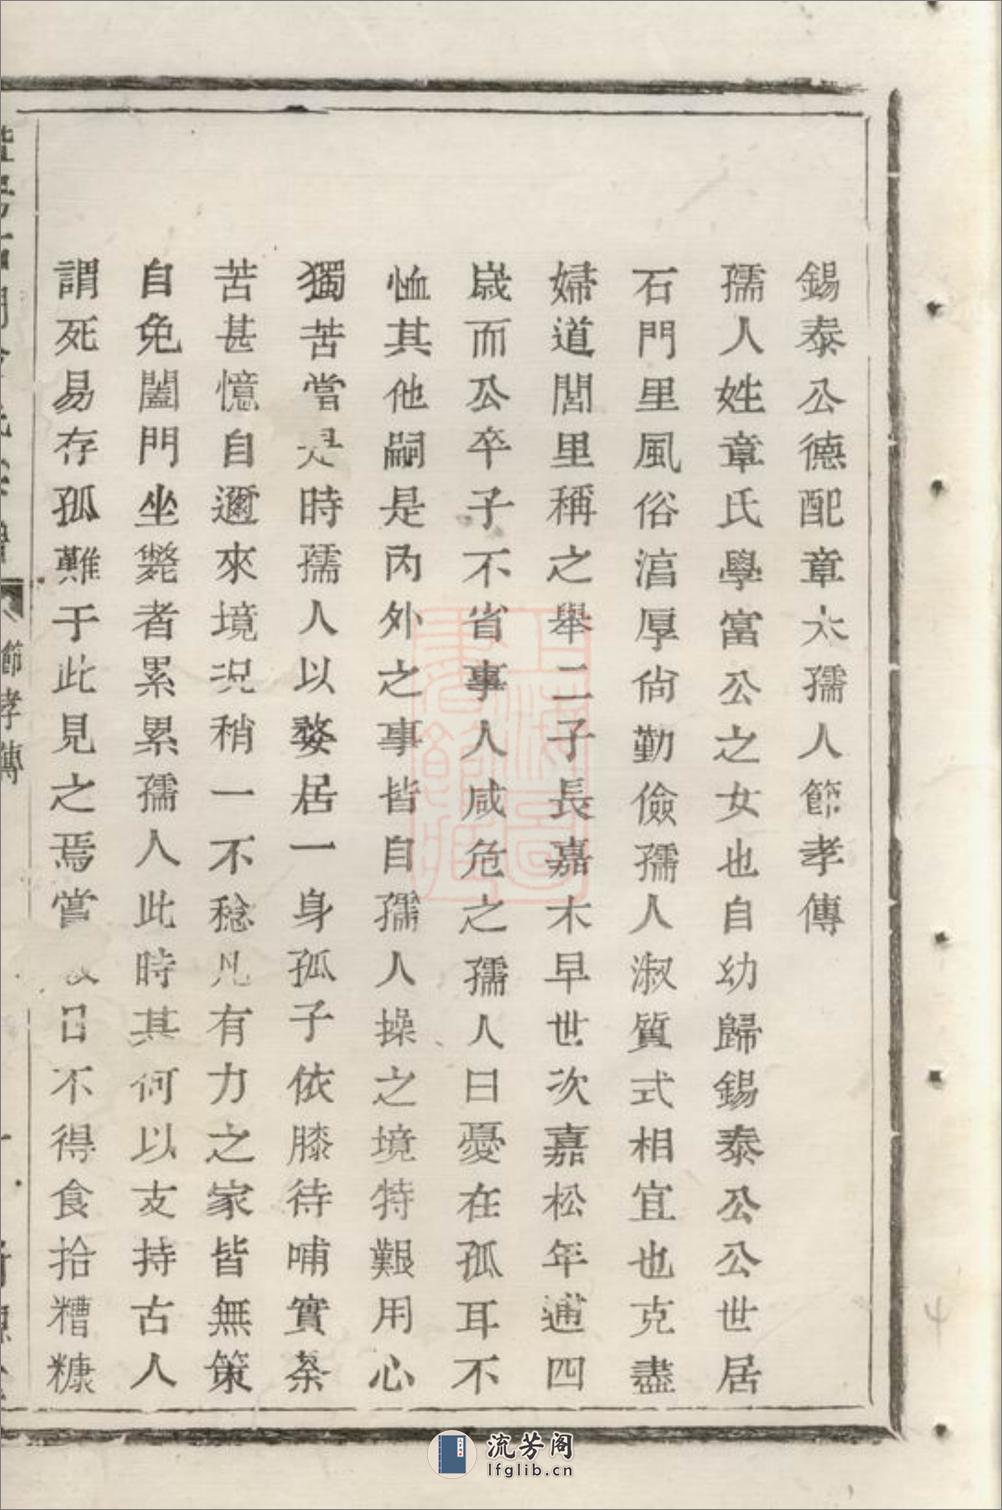 錫泰公德配章太孺人節孝傳
孺人姓章氏學富公之女也自幼歸錫泰公公世居
石門里風俗湻厚尙勤儉孺人淑質式相宜也克盡
婦道閭里稱之舉二子長嘉木早世次嘉松年逋四
歲而公卒子不省事人咸危之孺人曰憂在孤耳不
恤其他嗣是內外之事皆自孺人操之境特艱用心
獨苦當是時孺人以嫠居一身孤子依膝待哺實茶
苦甚憶自邇來境况稍一不稔凡有力之家皆無策
自免闔門坐斃者累累孺人此時其何以支持古人
謂死易存孤難于此見之焉嘗 日不得食拾糟糠
節孝傳
上海圖書館藏
流芳阁
lfglib.cn